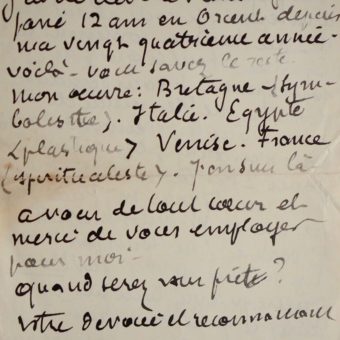 passé 12 ans en Orient depuis
ma vingt quatrieme année.
voilà - vous savez le reste
mon œuvre: Bretagne (Sym-
boliste). Italie. Egypte
(plastique) Venise. France
(spiritualiste). là
a vous de tout cœur et
merci de vous employer
pour moi -
quand serez vous prête?
votre devoué et reconnaissant